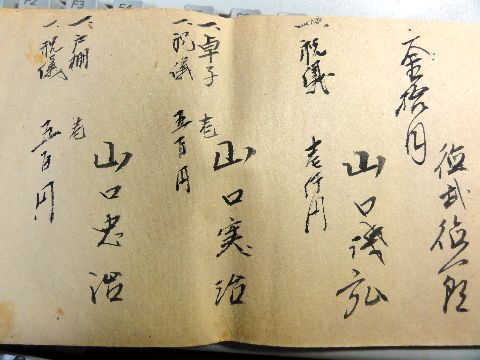 一、金拾円
一、祝儀 壱仟円
山口議弘
一、卓子 壱
一、祝儀 五百円
山口実治
一、戸棚 壱
一、祝儀 五百円
山口忠治